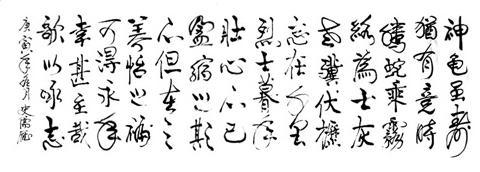 神龜虽壽
猶有竟時
騰蛇乘霧
終為土灰
老驥伏櫪
志在千里
烈士暮年
壯心不已
盈縮之期
不但在天
養怡之福
可得永年
幸甚至哉
歌以詠志
庚寅年月史